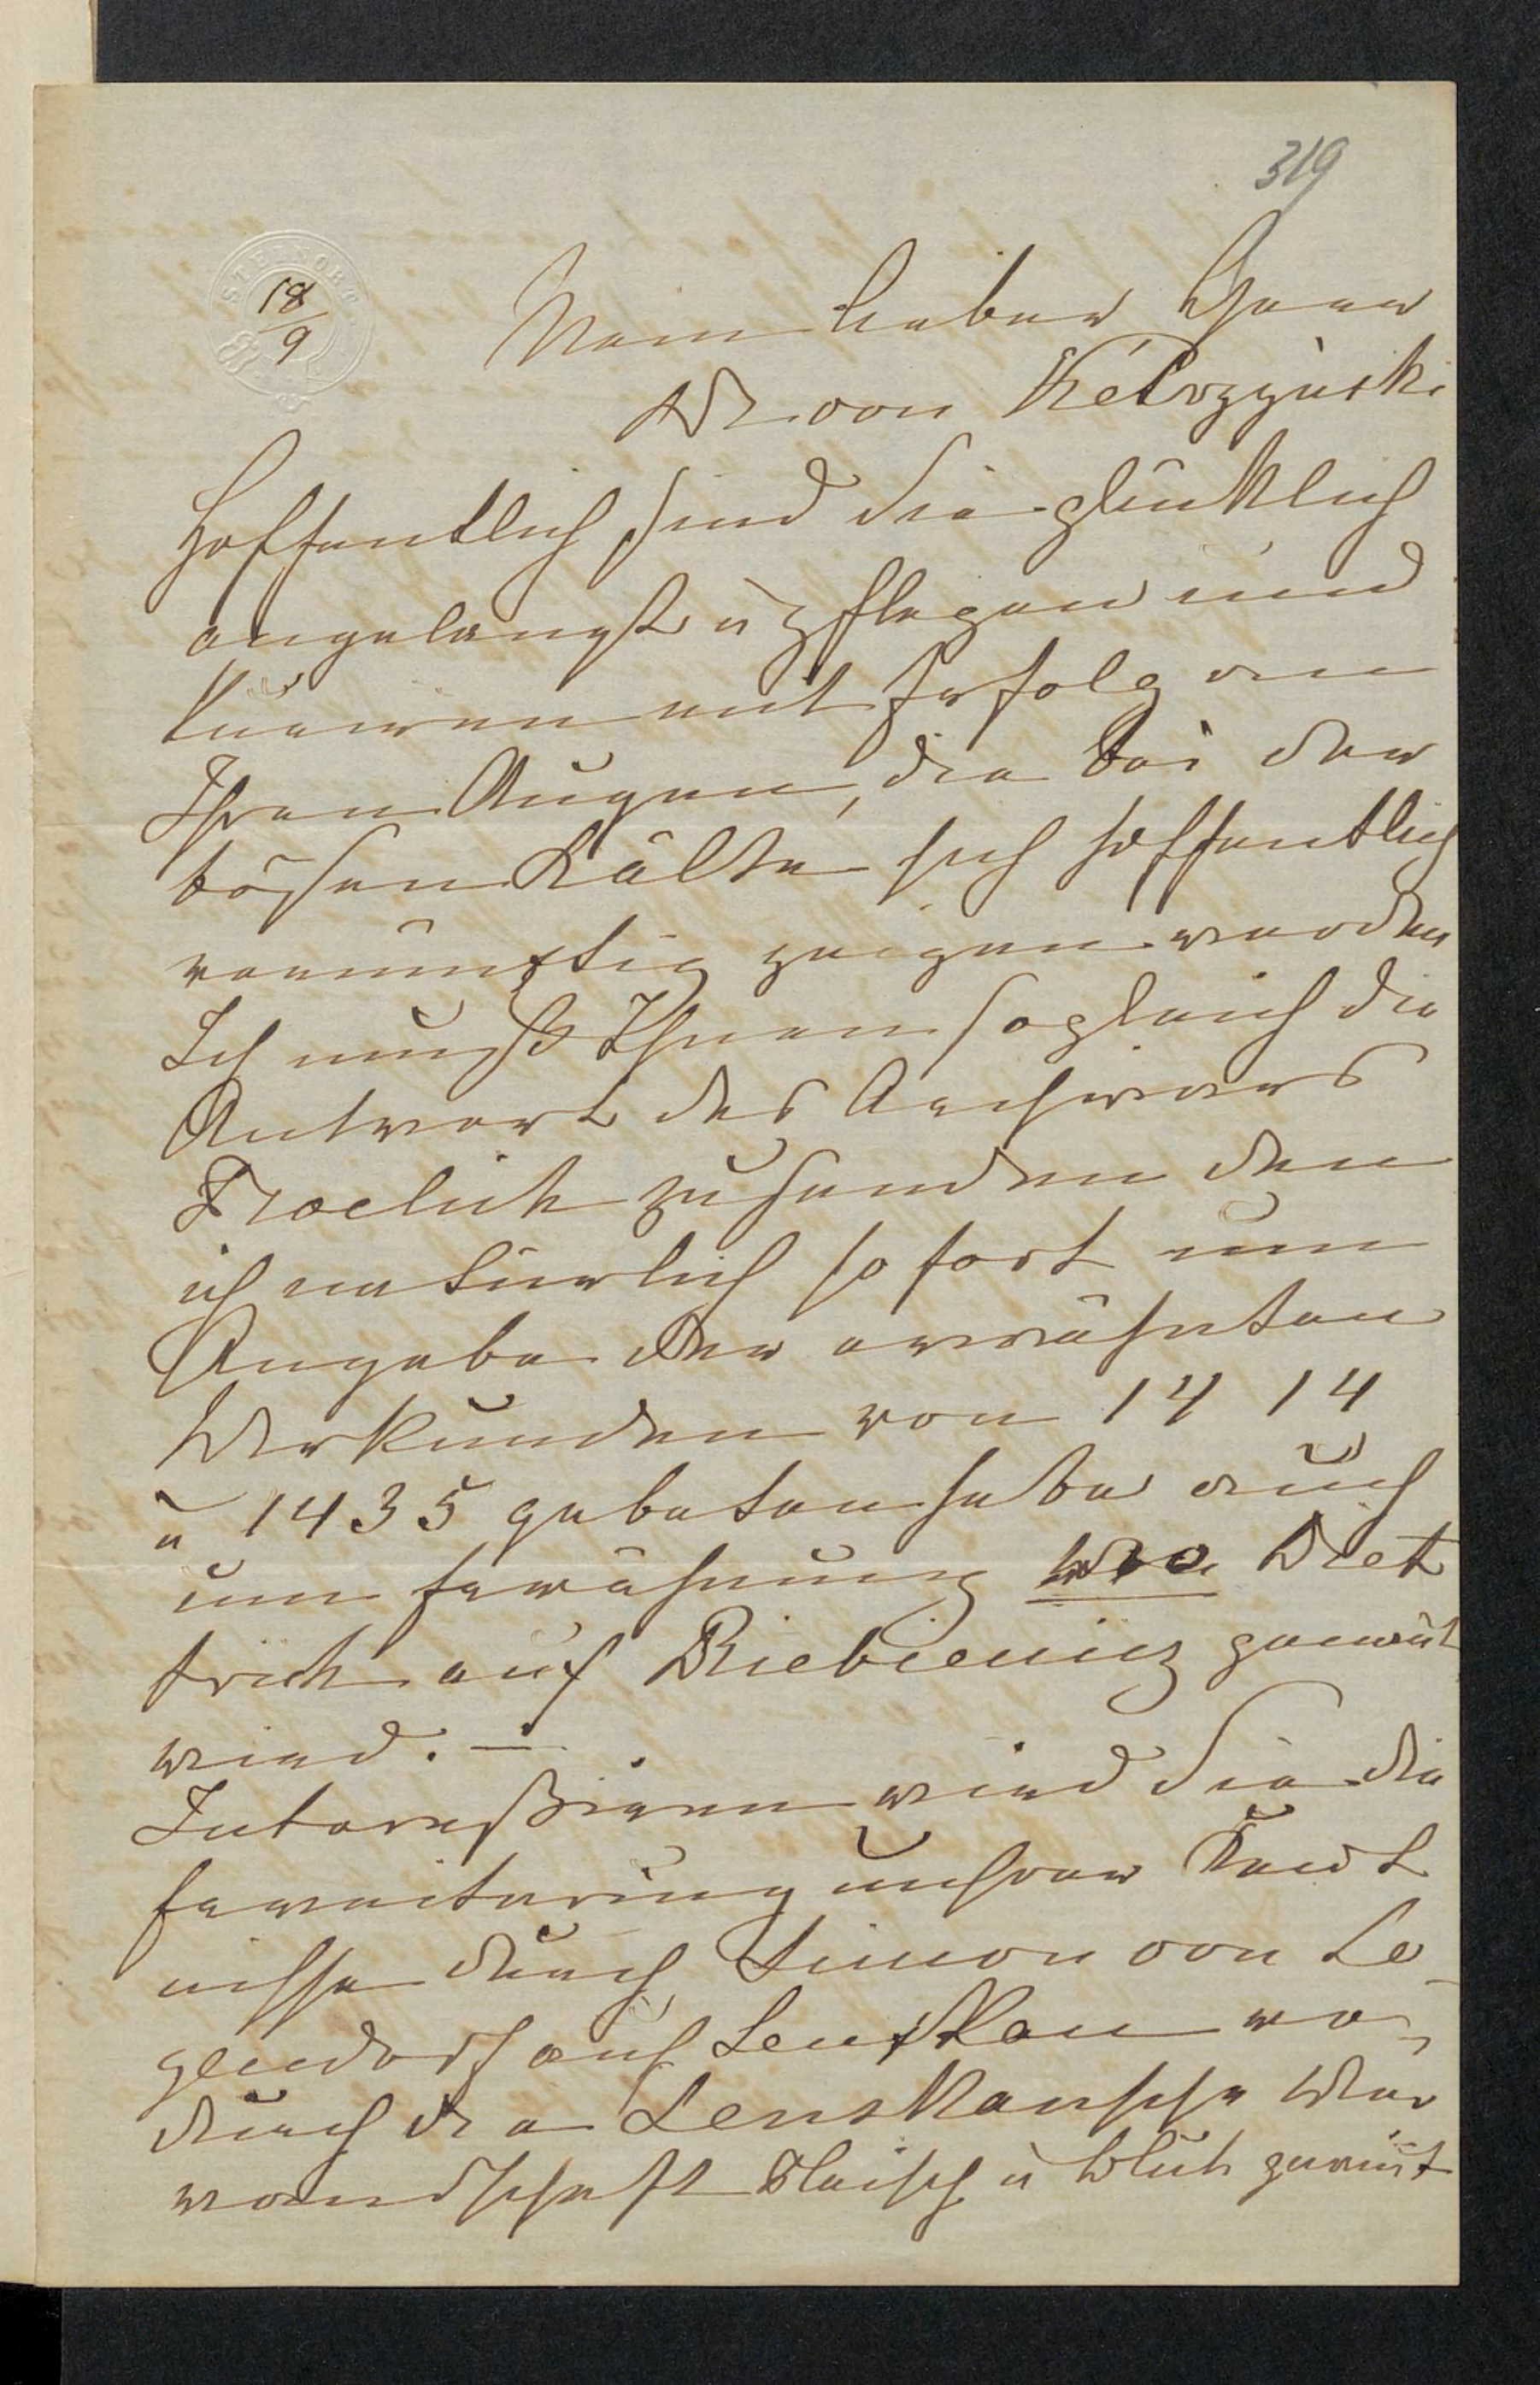 319
STEINORT
18
9
Mein lieber Herr
Dr von Kętrzyński
Hoffentlich sind Sie glücklich
angelangt u pflegen und
kuriren mit Erfolg an
Ihren Augen, die bei der
bösen Kälte sich hoffentlich
vernünftig zeigen werden
Ich muß Ihnen sogleich die
Antwort des Archivars
Froelich zusenden den
ich natürlich sofort um
Angabe der erwähnten
Urkunden von 14 14
u 1435 gebeten habe auch
um Erwähnung wo Diet
trich auf Biebienicz genant
wird. —
Interessiren wird Sie die
Erweiterung unsrer Kent
nisse durch Simon von Le-
gendorf auf Lensken wo-
durch die Lenskensche Ver
wandschaft Fleisch u Blut gewint